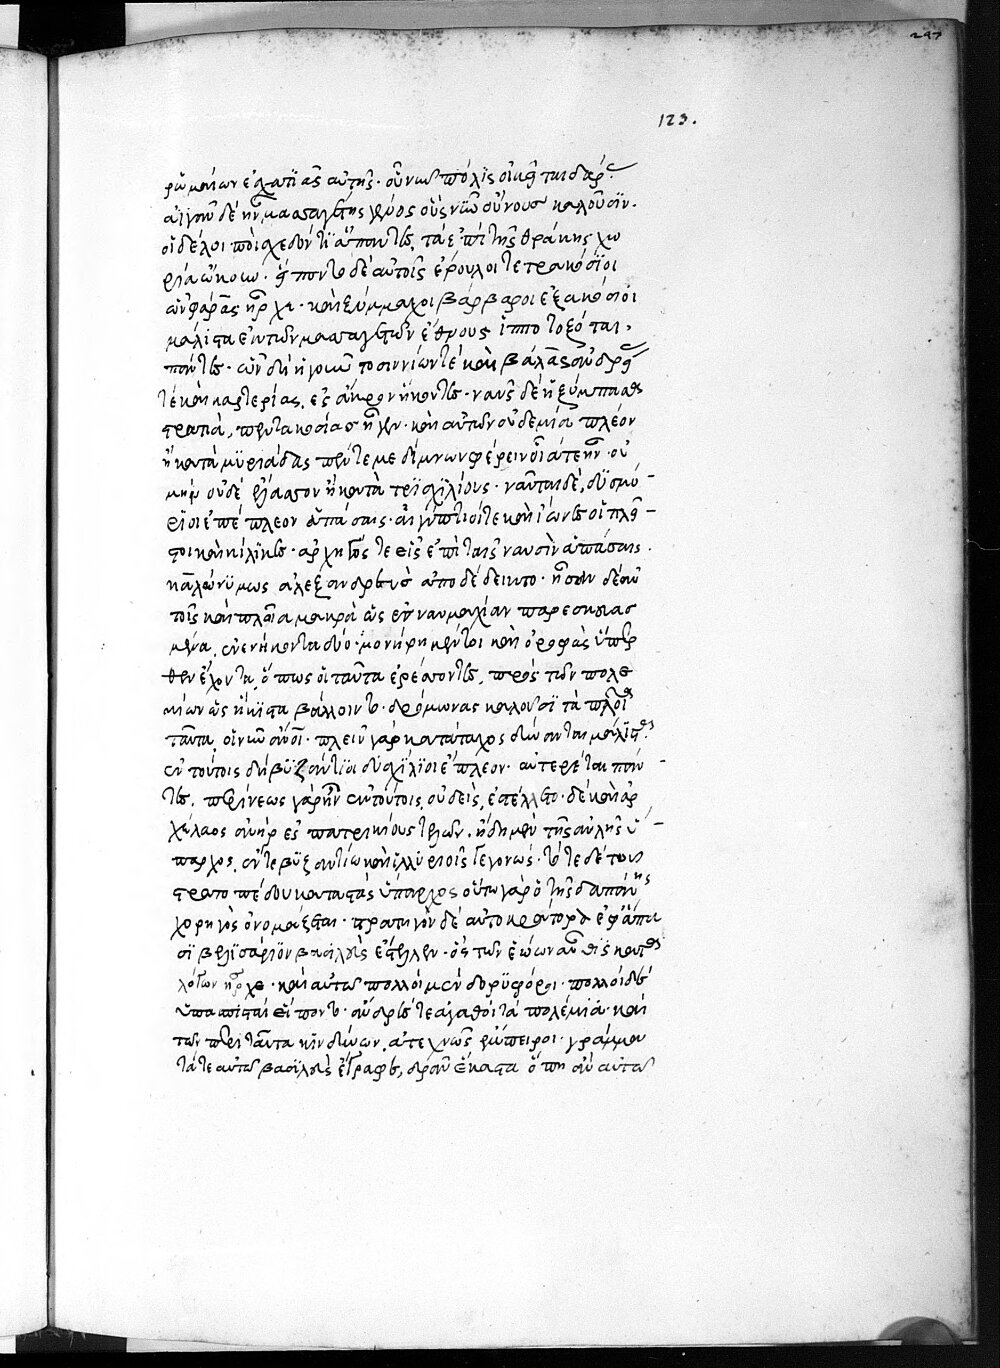 247
123.
ρωμαίων ἐσχατιᾶς αὐτῆς· οὗ νῦν πόλις οἰκεῖται δάρας·
αἰγὰν δὲ ἦν μασσαγέτης γένος οὓς νῦν οὔννους καλοῦσιν·
οἱ δὲ λοιποὶ σχεδόν τι ἅπαντες, τὰ ἐπὶ τῆς θράκης χω
ρία ᾤκουν· εἵποντο δὲ αὐτοῖς ἔρουλοι τετρακόσιοι
ὧν φάρας ἦρχε· καὶ ξύμμαχοι βάρβαροι ἑξακόσιοι
μάλιστα ἐκ τῶν μασσαγετῶν ἔθνους ἱπποτοξόται·
πάντες· ὧν δὴ ἡγοῦντο σιννίων τὲ καὶ βάλας ἀνδρείας
τὲ καὶ καρτερίας, ἐς ἄκρον ἥκοντες· ναῦς δὲ ἡ ξύμπασα
στρατιὰ, πεντακοσίας ἦγεν· καὶ αὐτῶν οὐδεμία πλέον
ἢ κατὰ μυριάδας πέντε μεδίμνων φέρειν οἵα τε ἦν· οὐ
μὴν οὐδὲ ἔλασσον ἢ κατὰ τρισχιλίους· ναῦται δὲ, δισμύ-
ριοι ἐπέπλεον ἁπάσαις· αἰγύπτιοί τε καὶ ἴωνες οἱ πλεῖ-
στοι καὶ κίλικες· ἀρχηγός τε εἷς ἐπὶ ταῖς ναυσὶν ἁπάσαις
καλώνυμως ἀλεξανδρεὺς ἀποδέδεικτο· ἦσαν δὲ αὐ
τοῖς καὶ πλοῖα μακρὰ ὡς ἐς ναυμαχίαν παρεσκευασ
μένα, ἐνενήκοντα δύο· μονήρη μέντοι καὶ ὀροφὰς ὕπερ
θεν ἔχοντα, ὅπως οἱ ταῦτα ἐρέσσοντες, πρὸς τῶν πολε
μίων ὡς ἥκιστα βάλλοιντο· δρόμωνας καλοῦσι τὰ πλοῖα
ταῦτα, οἱ νῦν ἄνθρωποι· πλεῖν γὰρ κατὰ τάχος δύνανται μάλιστα·
ἐν τούτοις δὴ βυζάντιοι δισχίλιοι ἔπλεον· αὐτερέται πάν-
τες, περίνεως γὰρ ἦν ἐν τούτοις οὐδεὶς, ἐστέλλετο δὲ καὶ ἀρ
χέλαος ἀνὴρ ἐς πατρικίους τελῶν, ἤδη μὲν τῆς αὐλῆς ὕ-
παρχος, ἔν τε βυζαντίῳ καὶ ἰλλυριοῖς γεγονώς· τότε δὲ τοῦ
στρατοπέδου καταστὰς ὕπαρχος οὕτω γὰρ ὁ τῆς δαπάνης
χορηγὸς ὀνομάζεται· στρατηγὸν δὲ αὐτοκράτορα ἐφ' ἅπα
σι βελισάριον βασιλεὺς ἔστελλεν· ὃς τῶν ἑῴων αὖθις κατα
λόγων ἦρχε· καὶ αὐτῷ πολλοὶ μὲν δορυφόροι· πολλοὶ δὲ
ὑπασπισταὶ εἵποντο· ἄνδρες τε ἀγαθοὶ τὰ πολέμια· καὶ
τῶν περὶ ταῦτα κινδύνων, ἀτεχνῶς ἔμπειροι· γράμμα
τά τε αὐτῷ βασιλεὺς ἔγραψε, δρᾶν ἕκαστα ὅπη ἂν αὐτῷ